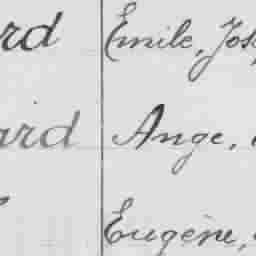 rd Emile, Jos
ard Ange,
Eugène,